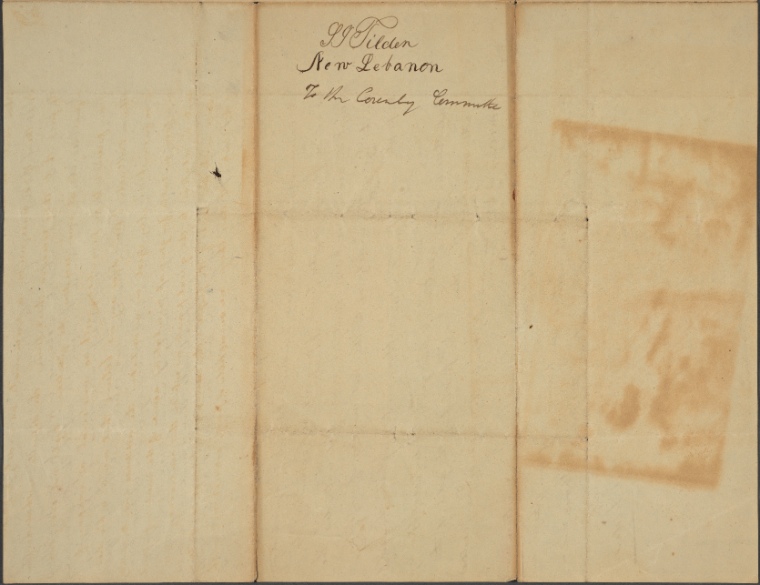 S J Tilden
New Lebanon
To the Committe